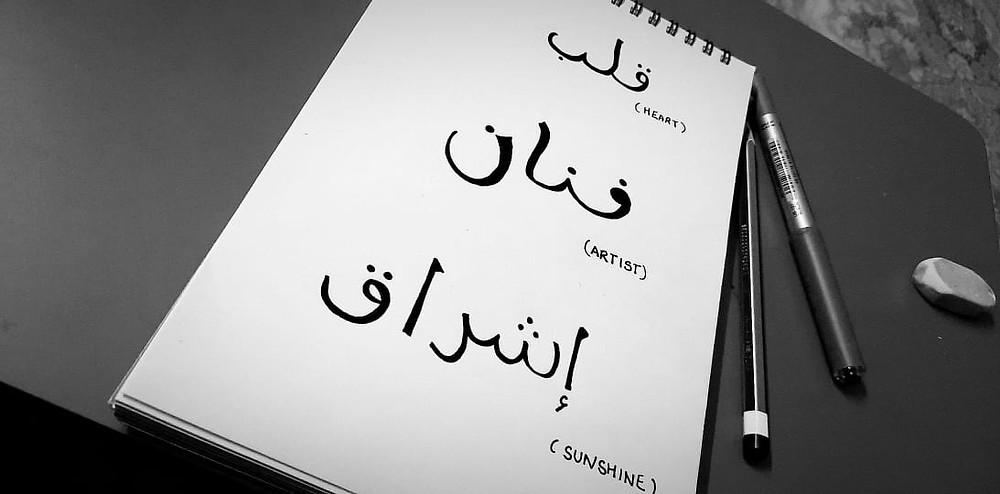 قلب
(HEART)
فنان
(ARTIST)
إشراق
(SUNSHINE)